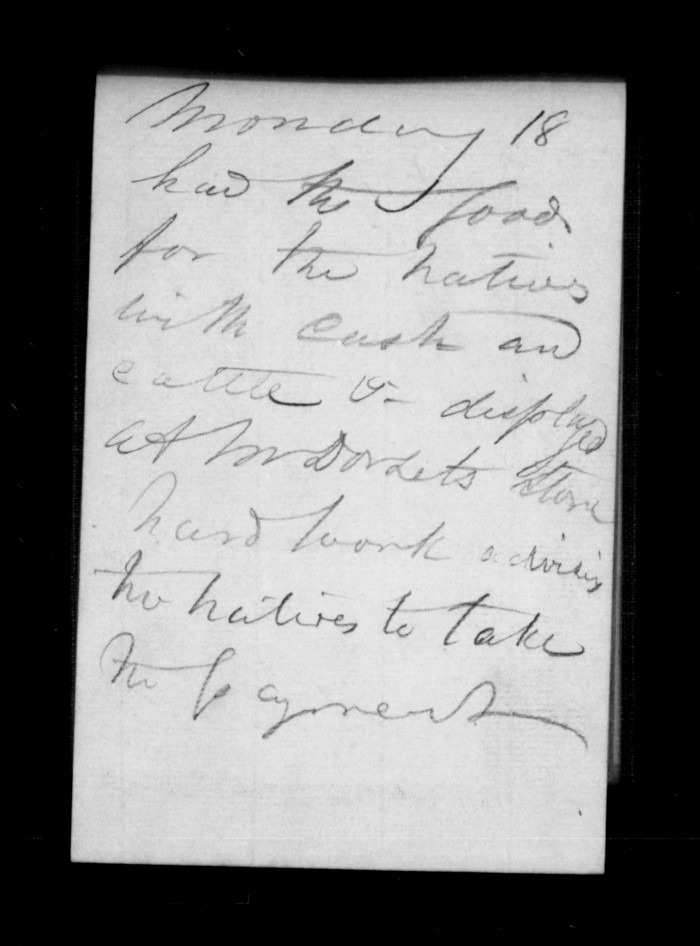 Monday 18
had the food
for the natives
with cash and
cattle &- displayed
at Mr Dorsets Store
hard work advising
the natives to take
the payment